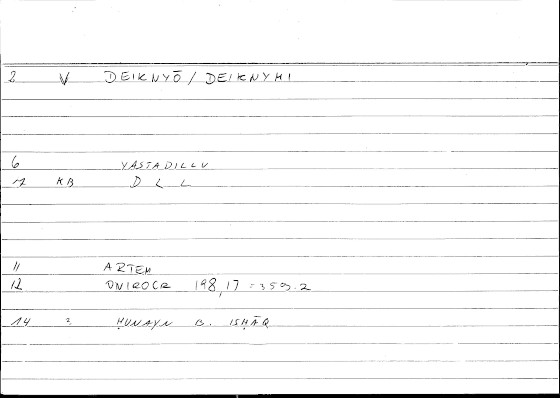 2 V DEIKNYŌ / DEIKNYMI
6 YASTADILLU
7 KB D L L
11 ARTEM
12 ONIROCR 198,17 = 359.2
14 2 ḤUNAYN B. ISḤĀQ